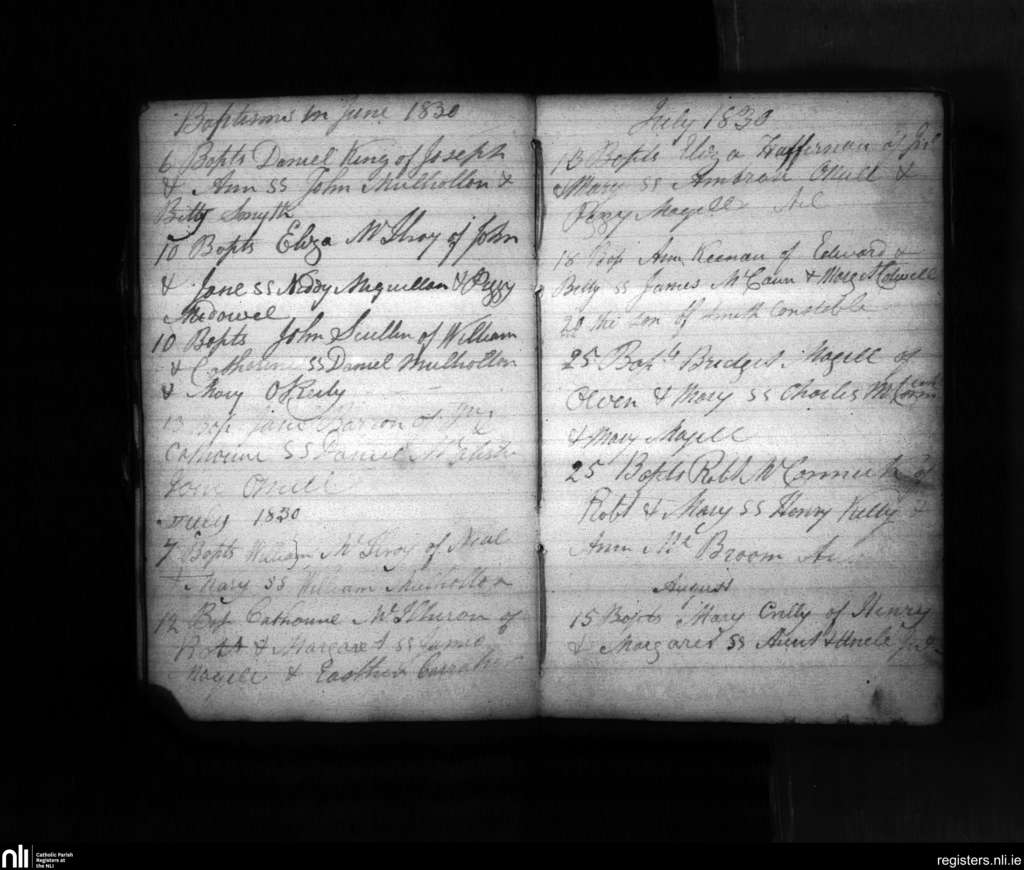 Baptisms in June 1830
6 Bapts Daniel King of Joseph
& Ann SS John Mulhollon &
Bitty Smyth
10 Bapts Eliza McIlroy of John
& Jane SS Neddy Mcquillan & Peggy
McDowel
10 Bapts John Scullin of William
& Catharine SS Daniel Mulhollon
& Mary OReily
13 Bap Jane Barron of
Catharine SS Daniel
Jane ONeill
July 1830
7 Bapts William McIlroy of Neal
& Mary SS William Mulhollon
12 Bap Catharine of
Robt & Margaret SS James
Magill & Easther
July 1830
13 Bapts Eliza Haffernan of
& Mary SS ONeill &
Peggy Magill
18 Bap Ann Keenan of Edward &
Betty SS James McCann & Colwell
20 the son of Smith Constable
25 Bridget Magill of
Owen & Mary SS Charles
& Mary Magill
25 Bapts Robt McCormick of
Robt & Mary SS Henry Kelly &
Ann Broom
August
15 Bapts Mary Crilly of Henry
& Margaret SS Aunt & Uncle
nli
Catholic Parish
Registers at
the NLI
registers.nli.ie